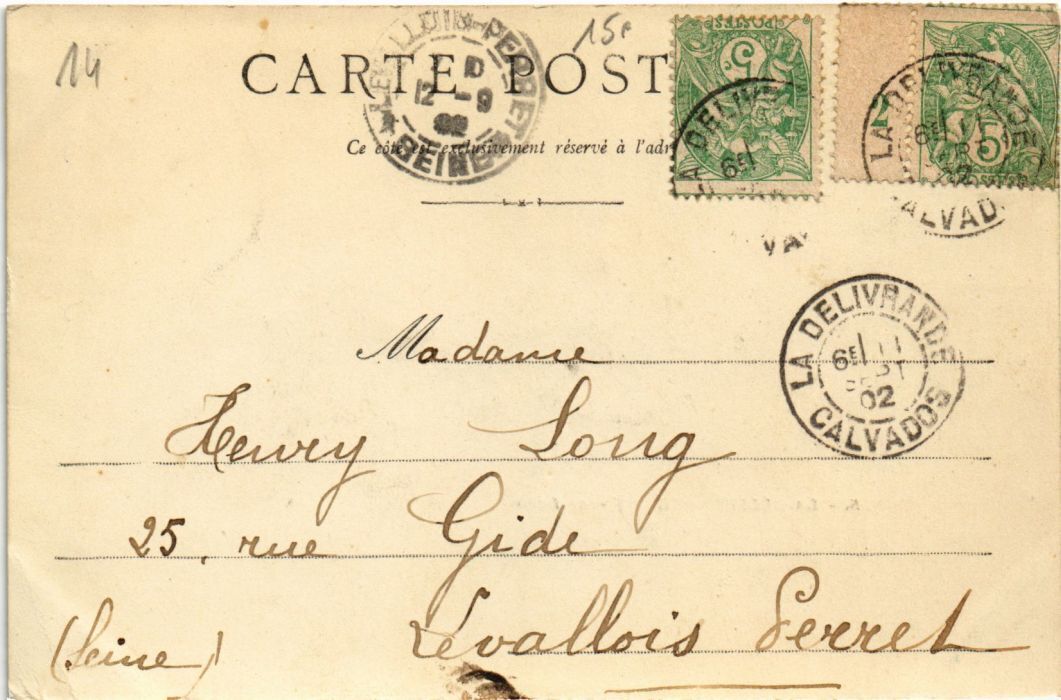 14
15e
CARTE POST
Ce côté est exclusivement réservé à l'adr
LEVALLOIS-PERRET
12 -9
02
SEINE
5
POSTES
LA DELIV
6E
VA
5
POSTES
LA DELIVRANDE
6E 11
CALVAD
LA DELIVRANDE
6E 11
SEPT
02
CALVADOS
Madame
Henry Long
25, rue Gide
(Seine) Levallois Perret